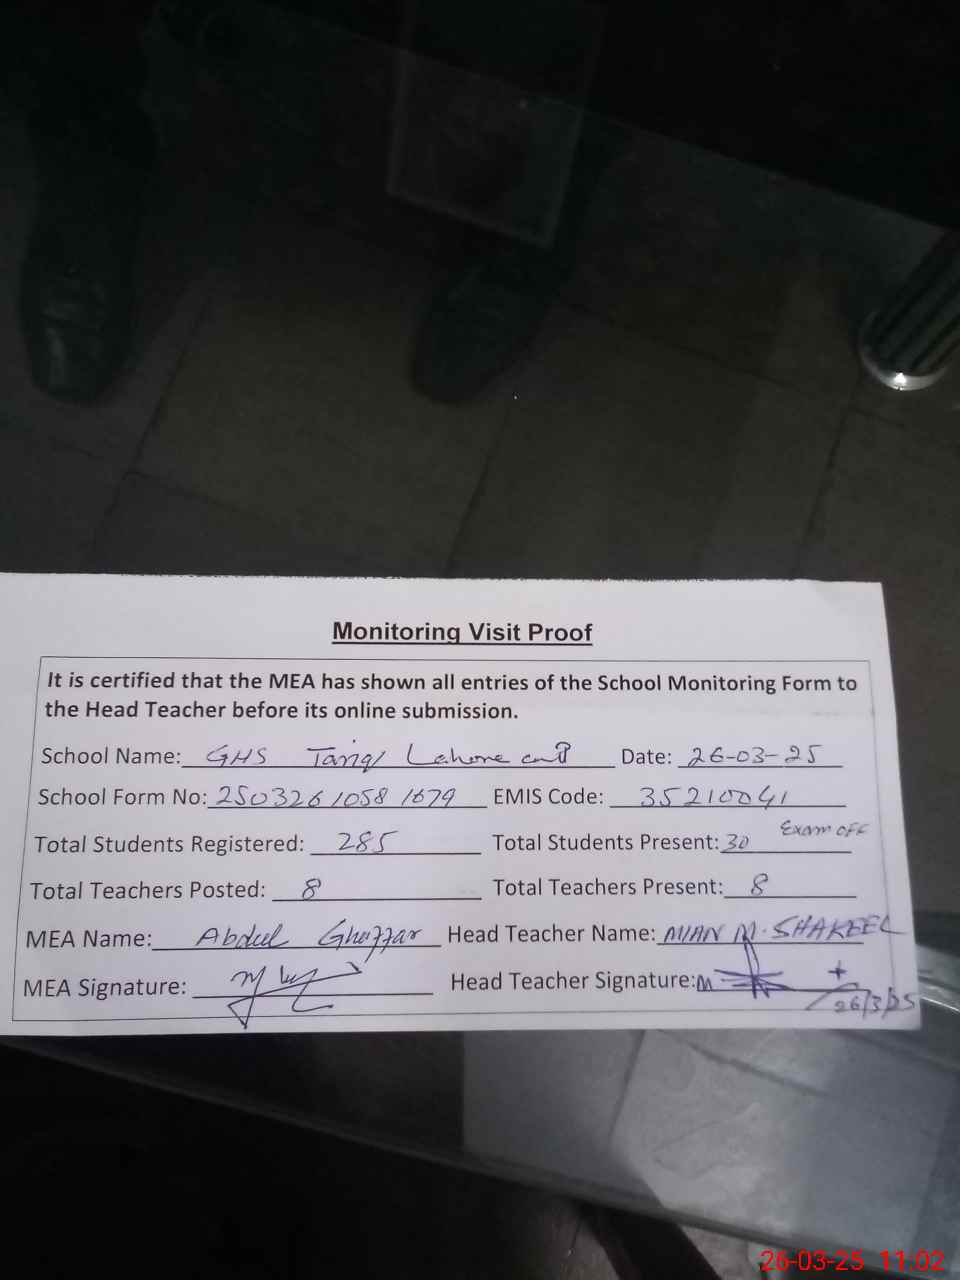 Monitoring Visit Proof
It is certified that the MEA has shown all entries of the School Monitoring Form to
the Head Teacher before its online submission.
School Name: GHS Tariq Lahore cantt Date: 26-03-25
School Form No: 25032610581679 EMIS Code: 35210041
Exam off
Total Students Registered: 285 Total Students Present: 30
Total Teachers Posted: 8 Total Teachers Present: 8
MEA Name: Abdul Ghaffar Head Teacher Name: MIAN M. SHAKEEL
MEA Signature: Head Teacher Signature:
26/3/25
26-03-25 11:02